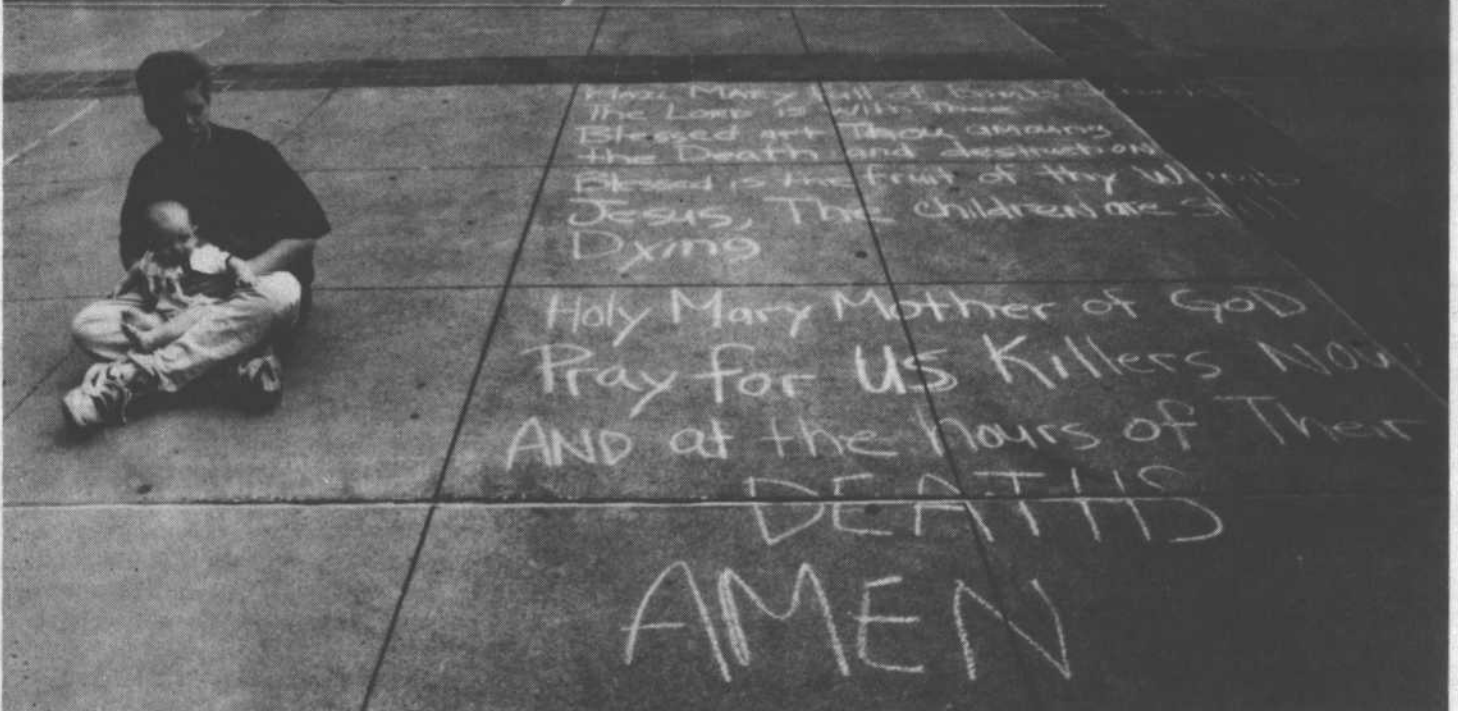 Hail MARY full of bombs
The LORD is with Thee
Blessed art Thou amoung
the Death and destruction
Blessed is the Fruit of thy Womb
Jesus, The children are still
Dying
Holy Mary Mother of GOD
Pray for US Killers Now
AND at the hours of Their
DEATHS
AMEN